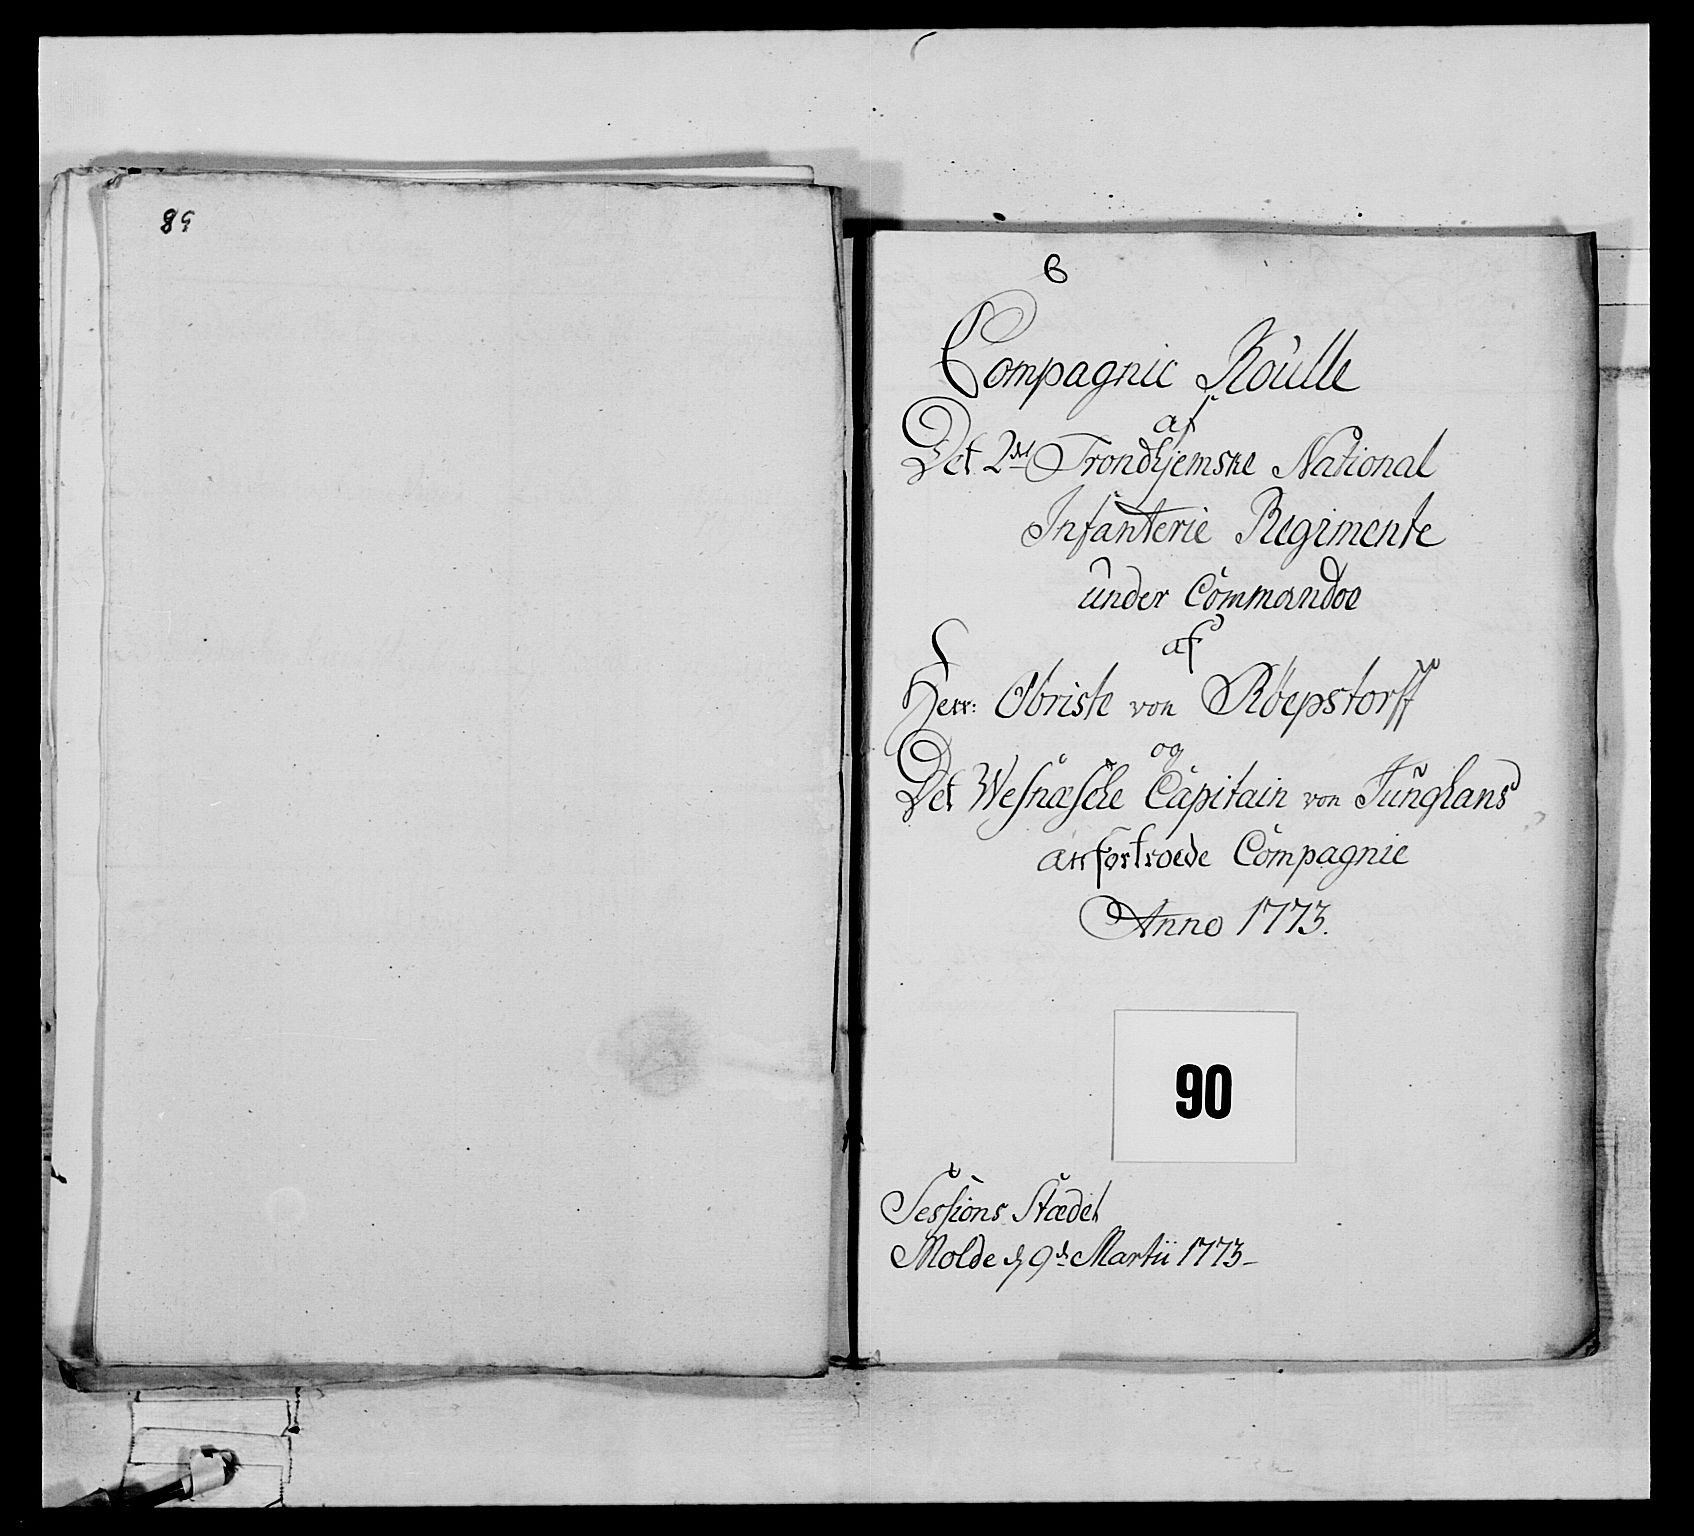 89
6
Compagnie Roulle
af
Det 2det Trondhjemske National
Infanterie Regimente
under Commandoe
af
Herr: Obriste von Röepstorff
og
Det Wesnæsche Capitain von Junghans
anfortroede Compagnie
Anno 1773.
90
Sessions Stædet
Molde d 9de Martii 1773